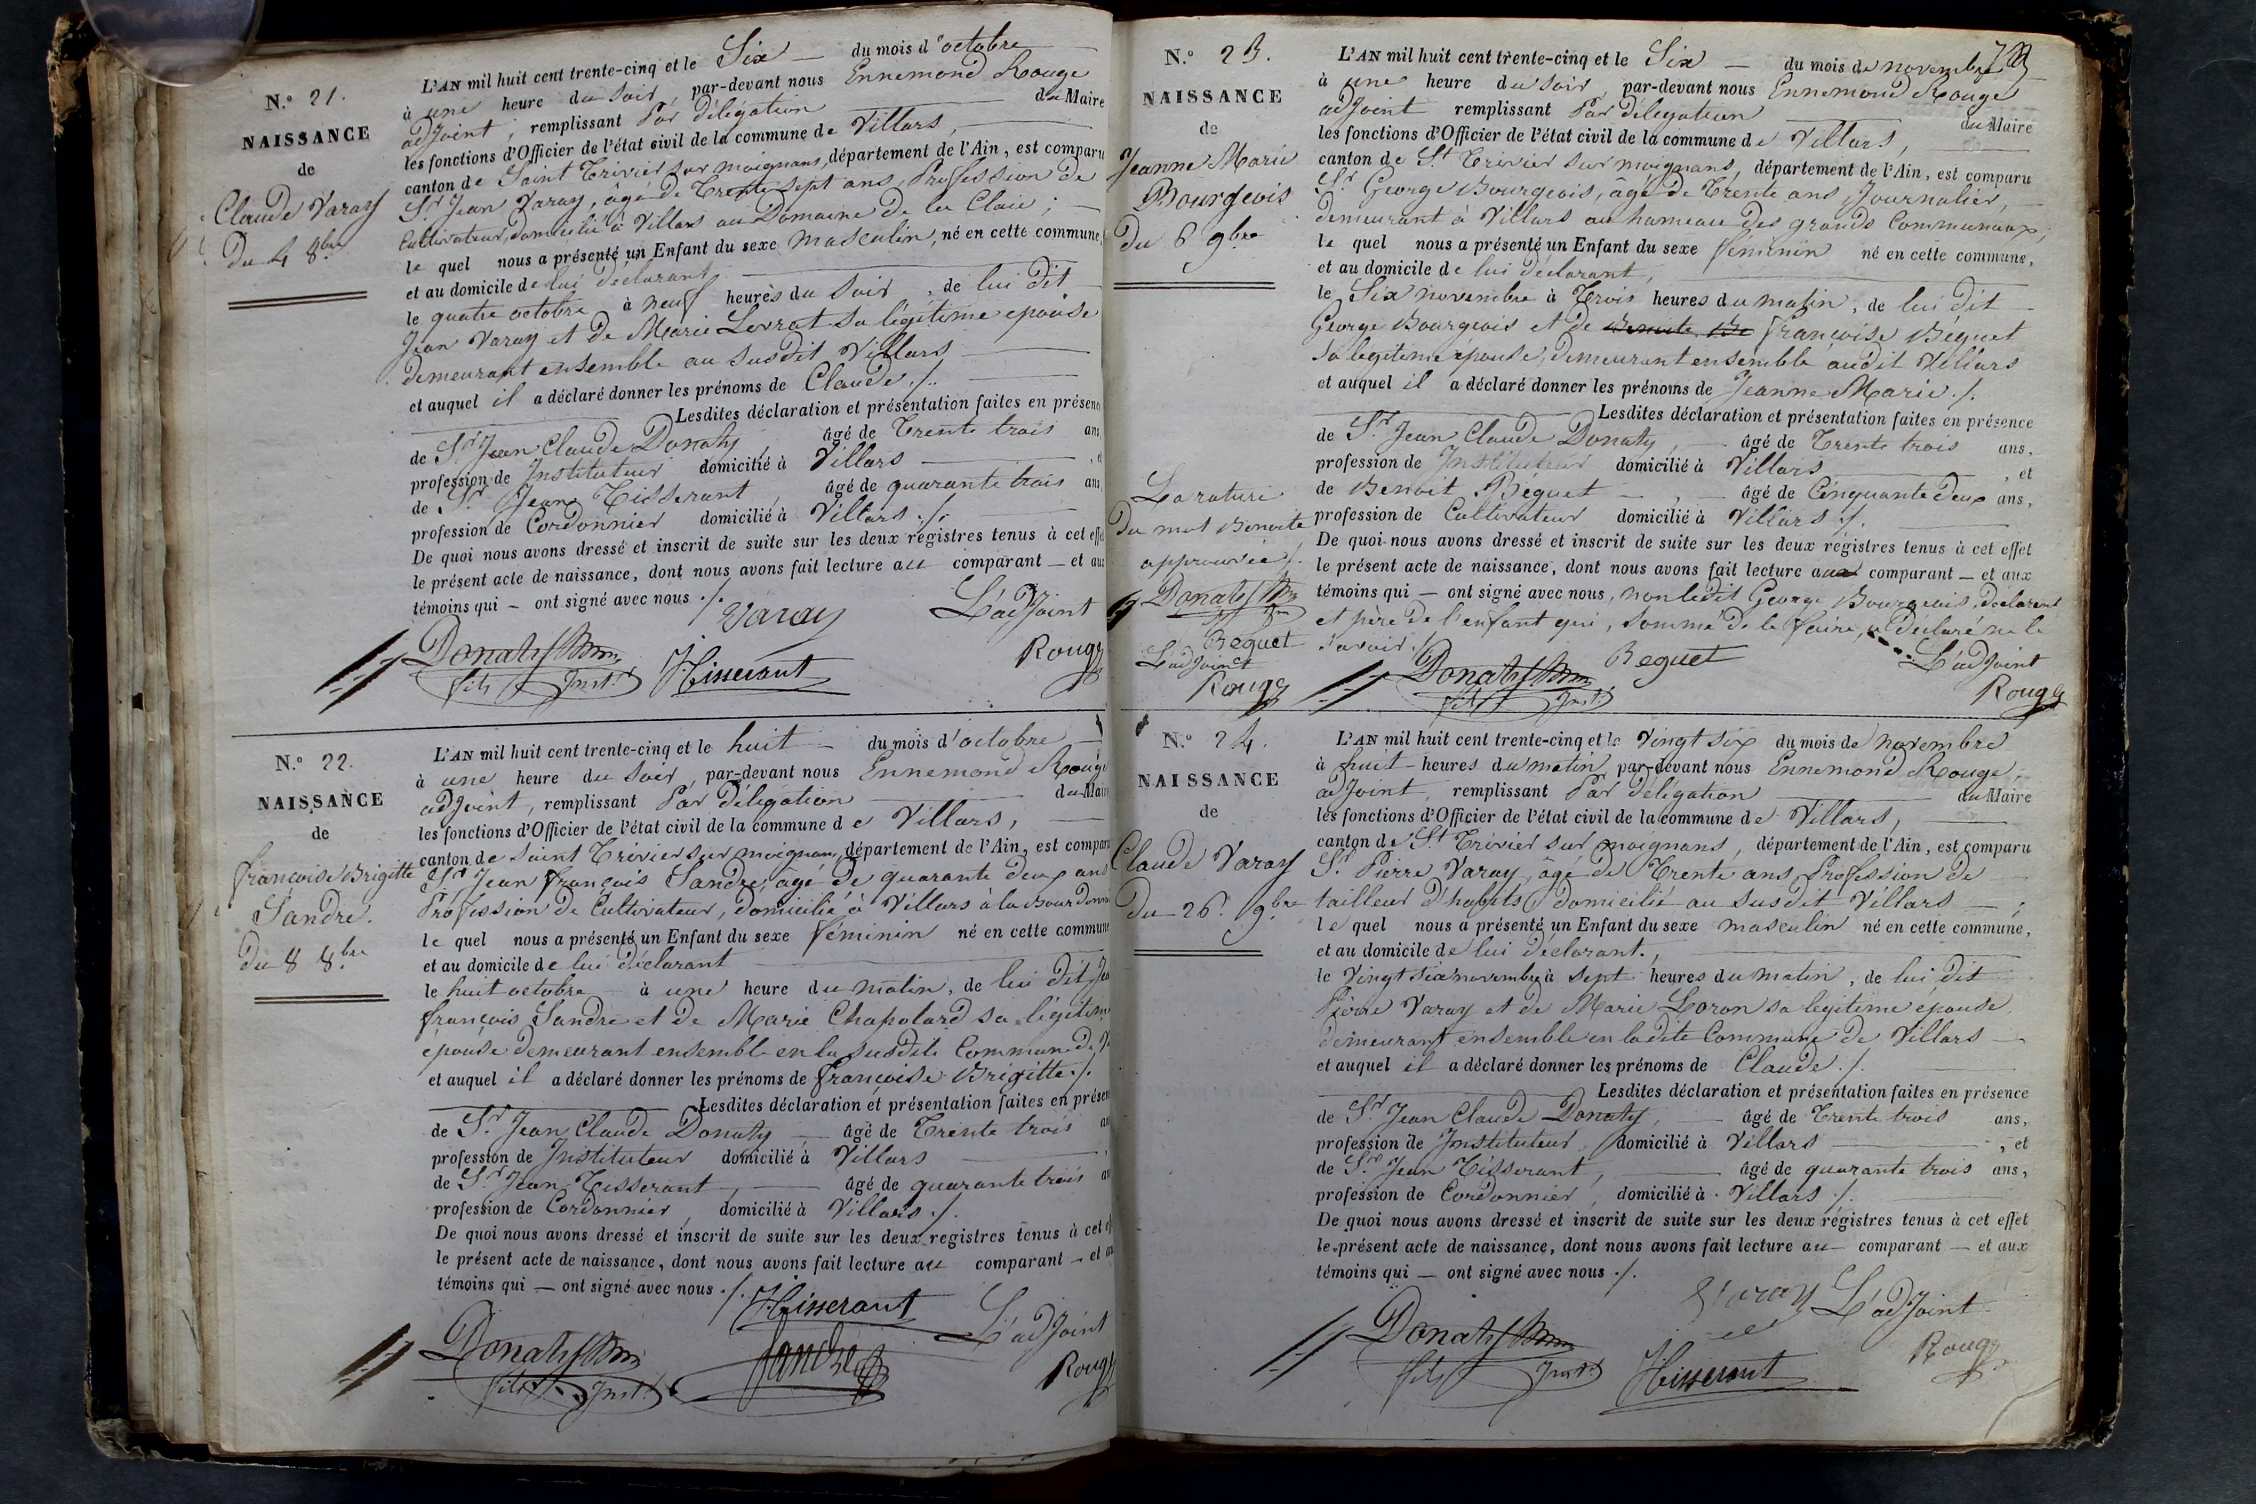 N.° 21.
NAISSANCE
de
Claude Varay
Du 4 8.bre
L'AN mil huit cent trente-cinq et le Six — du mois d'octobre
à une heure du Soir, par-devant nous Ennemond Rouge
adjoint, remplissant Par Délégation du Maire
les fonctions d'Officier de l'état civil de la commune de Villars,
canton de Saint Trivier sur moignans, département de l'Ain, est comparu
Sr Jean Varay, âgé de Trente sept ans, Profession de
Cultivateur, domicilié à Villars au Domaine de la Claie ;
le quel nous a présenté un Enfant du sexe masculin, né en cette commune,
et au domicile de lui déclarant
le quatre octobre à neuf heures du Soir, de lui dit
Jean Varay et de Marie Levrat sa légitime épouse
demeurant ensemble au susdit Villars
et auquel il a déclaré donner les prénoms de Claude ./.
Lesdites déclaration et présentation faites en présence
de Sr Jean Claude Donaty, âgé de Trente trois ans,
profession de Instituteur domicilié à Villars, et
de Sr Jean Tisserant, âgé de quarante trois ans,
profession de Cordonnier domicilié à Villars ./.
De quoi nous avons dressé et inscrit de suite sur les deux régistres tenus à cet effet
le présent acte de naissance, dont nous avons fait lecture au comparant — et aux
témoins qui — ont signé avec nous ./.
Varay L'adjoint
Donaty fils Inst.r JTisserant Rouge
N.° 22.
NAISSANCE
de
françoise Brigitte
Sandre.
Du 8 8.bre
L'AN mil huit cent trente-cinq et le huit — du mois d'octobre
à une heure du Soir, par-devant nous Ennemond Rouge
adjoint, remplissant Par Délégation du Maire
les fonctions d'Officier de l'état civil de la commune de Villars,
canton de Saint Trivier sur moignans, département de l'Ain, est comparu
Sr Jean françois Sandre, âgé de quarante deux ans
Profession de Cultivateur, domicilié à Villars à la Bourdonn
le quel nous a présenté un Enfant du sexe féminin né en cette commune
et au domicile de lui déclarant
le huit octobre à une heure du matin, de lui dit Jean
françois Sandre et de Marie Chapolard sa légitime
épouse demeurant ensemble en la susdite Commune de V
et auquel il a déclaré donner les prénoms de françoise Brigitte ./.
Lesdites déclaration et présentation faites en présen
de Sr Jean Claude Donaty, âgé de Trente trois an
profession de Instituteur domicilié à Villars
de Sr Jean Tisserant, âgé de quarante trois an
profession de Cordonnier, domicilié à Villars ./.
De quoi nous avons dressé et inscrit de suite sur les deux registres tenus à cet ef
le présent acte de naissance, dont nous avons fait lecture au comparant — et au
témoins qui — ont signé avec nous ./.
JTisserant L'adjoint
Donaty fils Inst.r Sandre Rouge
N.° 23.
NAISSANCE
de
Jeanne Marie
Bourgeois
du 6 9bre
La rature
du mot Benoite
approuvée ./.
Donaty
Beguet
L'adjoint
Rouge
L'AN mil huit cent trente-cinq et le Six — du mois de novembre
à une heure du soir, par-devant nous Ennemond Rouge
adjoint remplissant Par délégation du Maire
les fonctions d'Officier de l'état civil de la commune de Villars,
canton de St Trivier sur moignans, département de l'Ain, est comparu
Sr George Bourgeois, âgé de Trente ans, Journalier,
demeurant à Villars au hameau des grands Communaux ;
le quel nous a présenté un Enfant du sexe féminin né en cette commune,
et au domicile de lui déclarant,
le Six novembre à Trois heures du matin, de lui dit
George Bourgeois et de Benoite Be françoise Béguet
sa légitime épouse, demeurant ensemble audit Villars
et auquel il a déclaré donner les prénoms de Jeanne Marie ./.
Lesdites déclaration et présentation faites en présence
de Sr Jean Claude Donaty, — âgé de Trente trois ans,
profession de Instituteur domicilié à Villars, et
de Benoit Béguet — , — âgé de Cinquante deux ans,
profession de Cultivateur domicilié à Villars ./.
De quoi nous avons dressé et inscrit de suite sur les deux régistres tenus à cet effet
le présent acte de naissance, dont nous avons fait lecture aux comparant — et aux
témoins qui — ont signé avec nous, non ledit George Bourgeois, déclarant
et père de l'enfant qui, sommé de le faire, a déclaré ne le
savoir ./.
Donaty fils Inst.r Beguet L'adjoint
Rouge
N.° 24.
NAISSANCE
de
Claude Varay
Du 26. 9.bre
L'AN mil huit cent trente-cinq et le Vingt six du mois de novembre
à huit heures du matin, par-devant nous Ennemond Rouge,
adjoint, remplissant Par Délégation du Maire
les fonctions d'Officier de l'état civil de la commune de Villars,
canton de St Trivier sur moignans, département de l'Ain, est comparu
Sr Pierre Varay, âgé de Trente ans, Profession de
tailleur d'habits, domicilié au susdit Villars — ;
le quel nous a présenté un Enfant du sexe masculin né en cette commune,
et au domicile de lui déclarant,
le Vingt six novembre à sept heures du matin, de lui dit
Pierre Varay et de Marie Loron sa légitime épouse
demeurant ensemble en ladite Commune de Villars
et auquel il a déclaré donner les prénoms de Claude ./.
Lesdites déclaration et présentation faites en présence
de Sr Jean Claude Donaty, — âgé de Trente trois ans,
profession de Instituteur, domicilié à Villars, et
de Sr Jean Tisserant, — âgé de quarante trois ans,
profession de Cordonnier, domicilié à Villars ./.
De quoi nous avons dressé et inscrit de suite sur les deux régistres tenus à cet effet
le présent acte de naissance, dont nous avons fait lecture au — comparant — et aux
témoins qui — ont signé avec nous ./.
Varay L'adjoint
Donaty fils Inst.r JTisserant Rouge